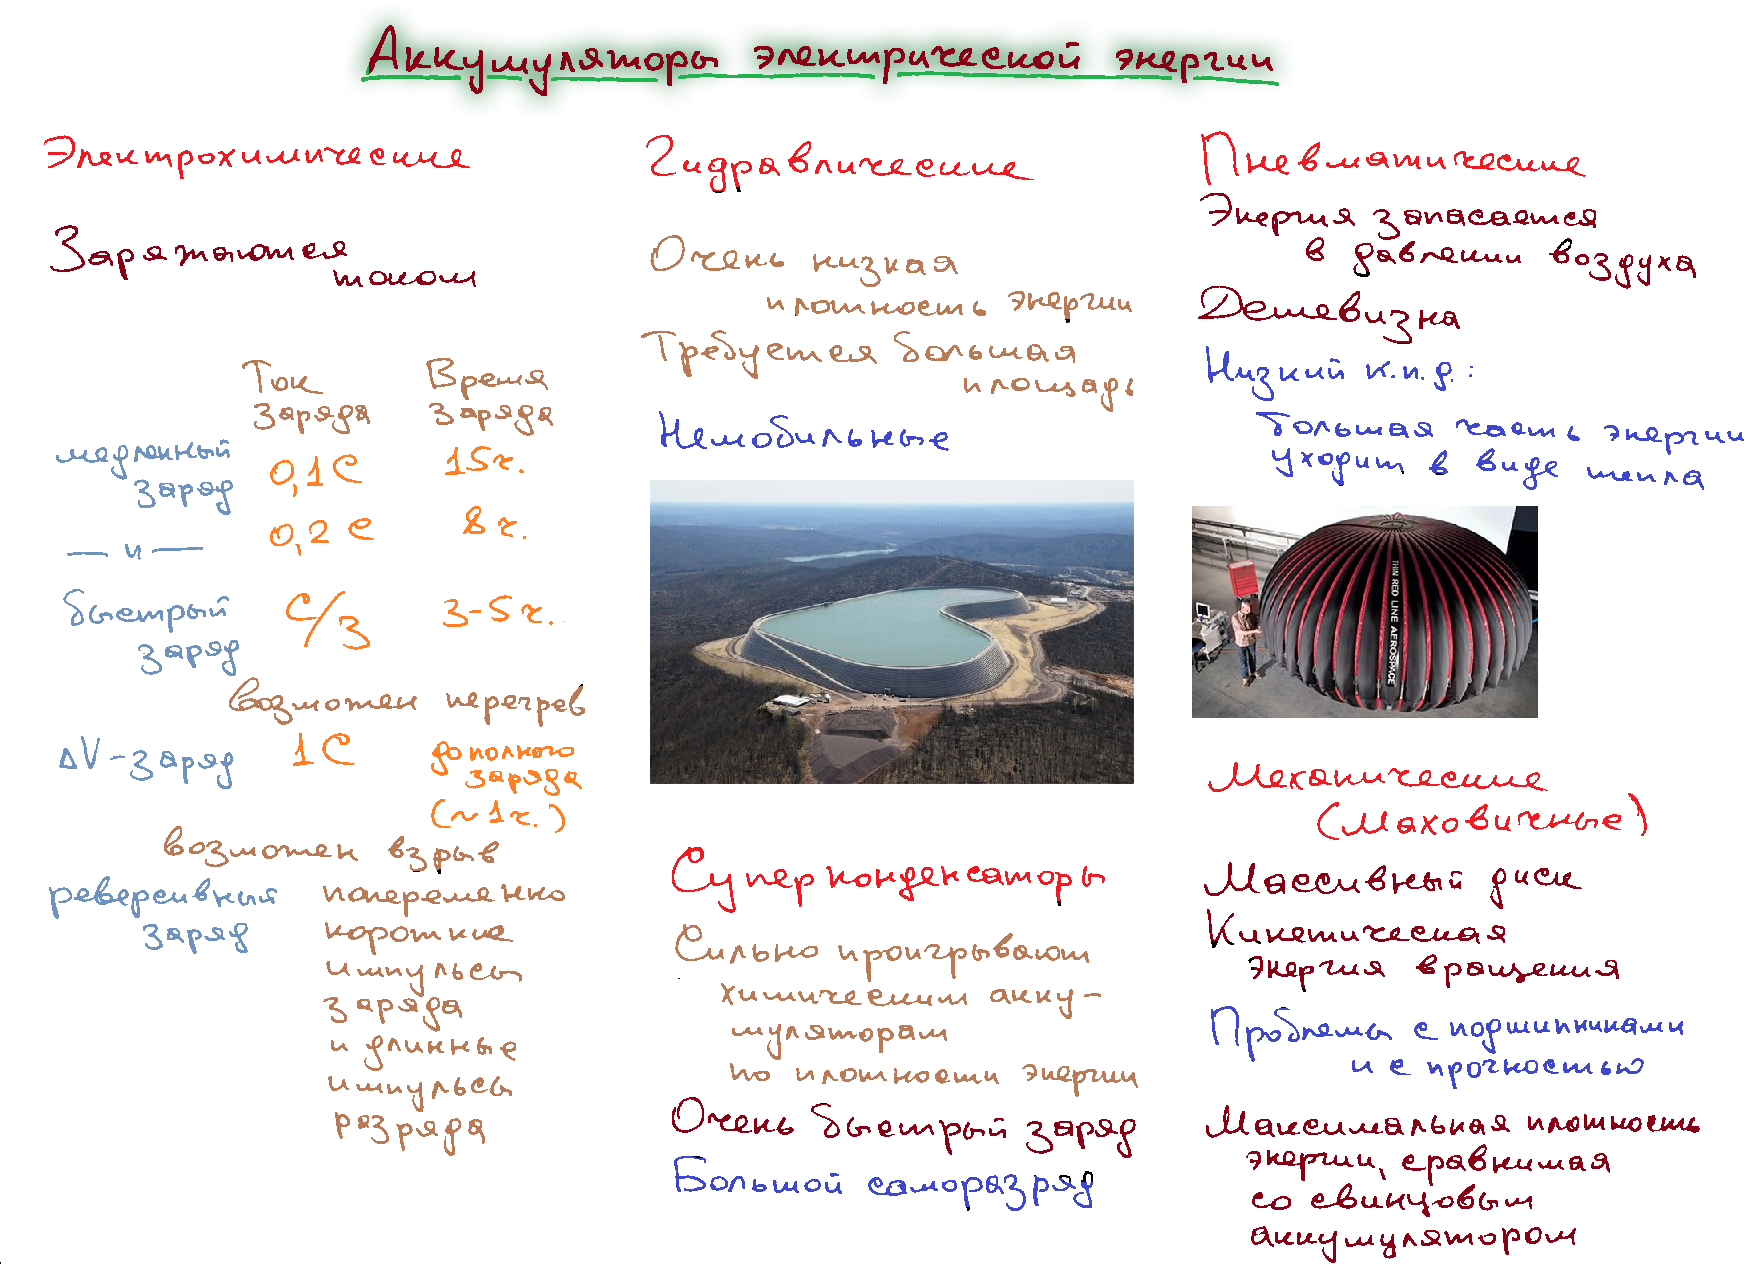 Аккумуляторы электрической энергии
Электрохимические
Заряжаются
током
Ток
заряда
Время
заряда
медленный
заряд
0,1С
15ч.
— и —
0,2С
8ч.
быстрый
заряд
С/3
3-5ч.
возможен перегрев
ΔV-заряд
1С
до полного
заряда
(~1ч.)
возможен взрыв
реверсивный
заряд
попеременно
короткие
импульсы
заряда
и длинные
импульсы
разряда
Гидравлические
Очень низкая
плотность энергии
Требуется большая
площадь
Немобильные
Суперконденсаторы
Сильно проигрывают
химическим акку-
муляторам
по плотности энергии
Очень быстрый заряд
Большой саморазряд
Пневматические
Энергия запасается
в давлении воздуха
Дешевизна
Низкий к.п.д.:
большая часть энергии
уходит в виде тепла
THIN RED LINE AEROSPACE
Механические
(Маховичные)
Массивный диск
Кинетическая
энергия вращения
Проблемы с подшипниками
и с прочностью
Максимальная плотность
энергии, сравнимая
со свинцовым
аккумулятором